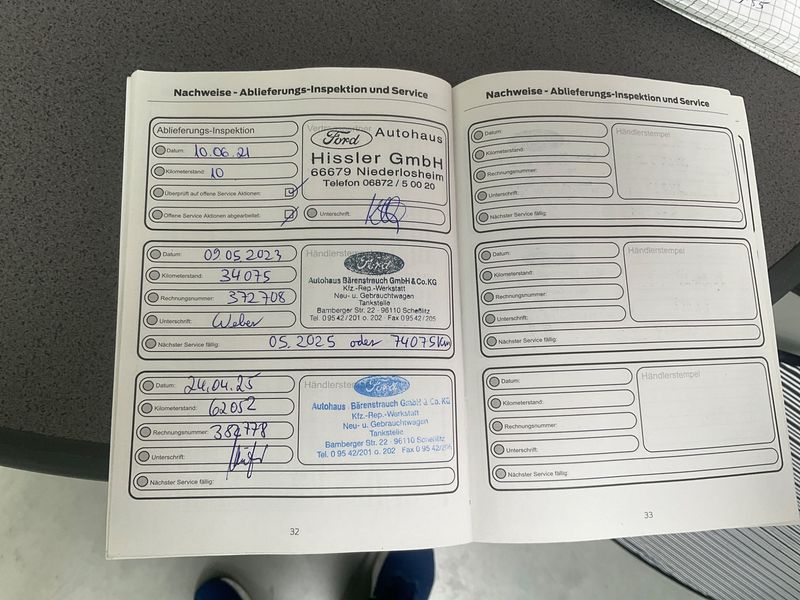 Nachweise - Ablieferungs-Inspektion und Service
Ablieferungs-Inspektion
Datum: 10.06.21
Kilometerstand: 10
Überprüft auf offene Service Aktionen:
Offene Service Aktionen abgearbeitet:
Ford Autohaus
Hissler GmbH
66679 Niederlosheim
Telefon 06872 / 5 00 20
Unterschrift:
Datum: 09 05 2023
Kilometerstand: 34075
Rechnungsnummer: 372708
Unterschrift: Weber
Nächster Service fällig: 05.2025 oder 74075 km
Händlerstempel
Ford
Autohaus Bärenstrauch GmbH & Co. KG
Kfz.-Rep.-Werkstatt
Neu- u. Gebrauchtwagen
Tankstelle
Bamberger Str. 22 · 96110 Scheßlitz
Tel. 0 95 42 / 201 o. 202 · Fax 0 95 42 / 205
Datum: 24.04.25
Kilometerstand: 62052
Rechnungsnummer: 382778
Unterschrift:
Nächster Service fällig:
Ford
Autohaus Bärenstrauch GmbH & Co. KG
Kfz.-Rep.-Werkstatt
Neu- u. Gebrauchtwagen
Tankstelle
Bamberger Str. 22 · 96110 Scheßlitz
Tel. 0 95 42/201 o. 202 · Fax 0 95 42/205
32
Nachweise - Ablieferungs-Inspektion und Service
Datum:
Kilometerstand:
Rechnungsnummer:
Unterschrift:
Nächster Service fällig:
Händlerstempel
Datum:
Kilometerstand:
Rechnungsnummer:
Unterschrift:
Nächster Service fällig:
Händlerstempel
Datum:
Kilometerstand:
Rechnungsnummer:
Unterschrift:
Nächster Service fällig:
Händlerstempel
33